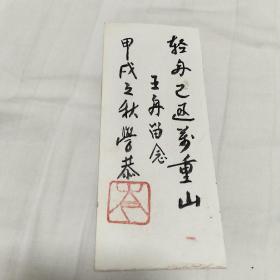 轻舟已过万重山
王舟留念
甲戌之秋学恭